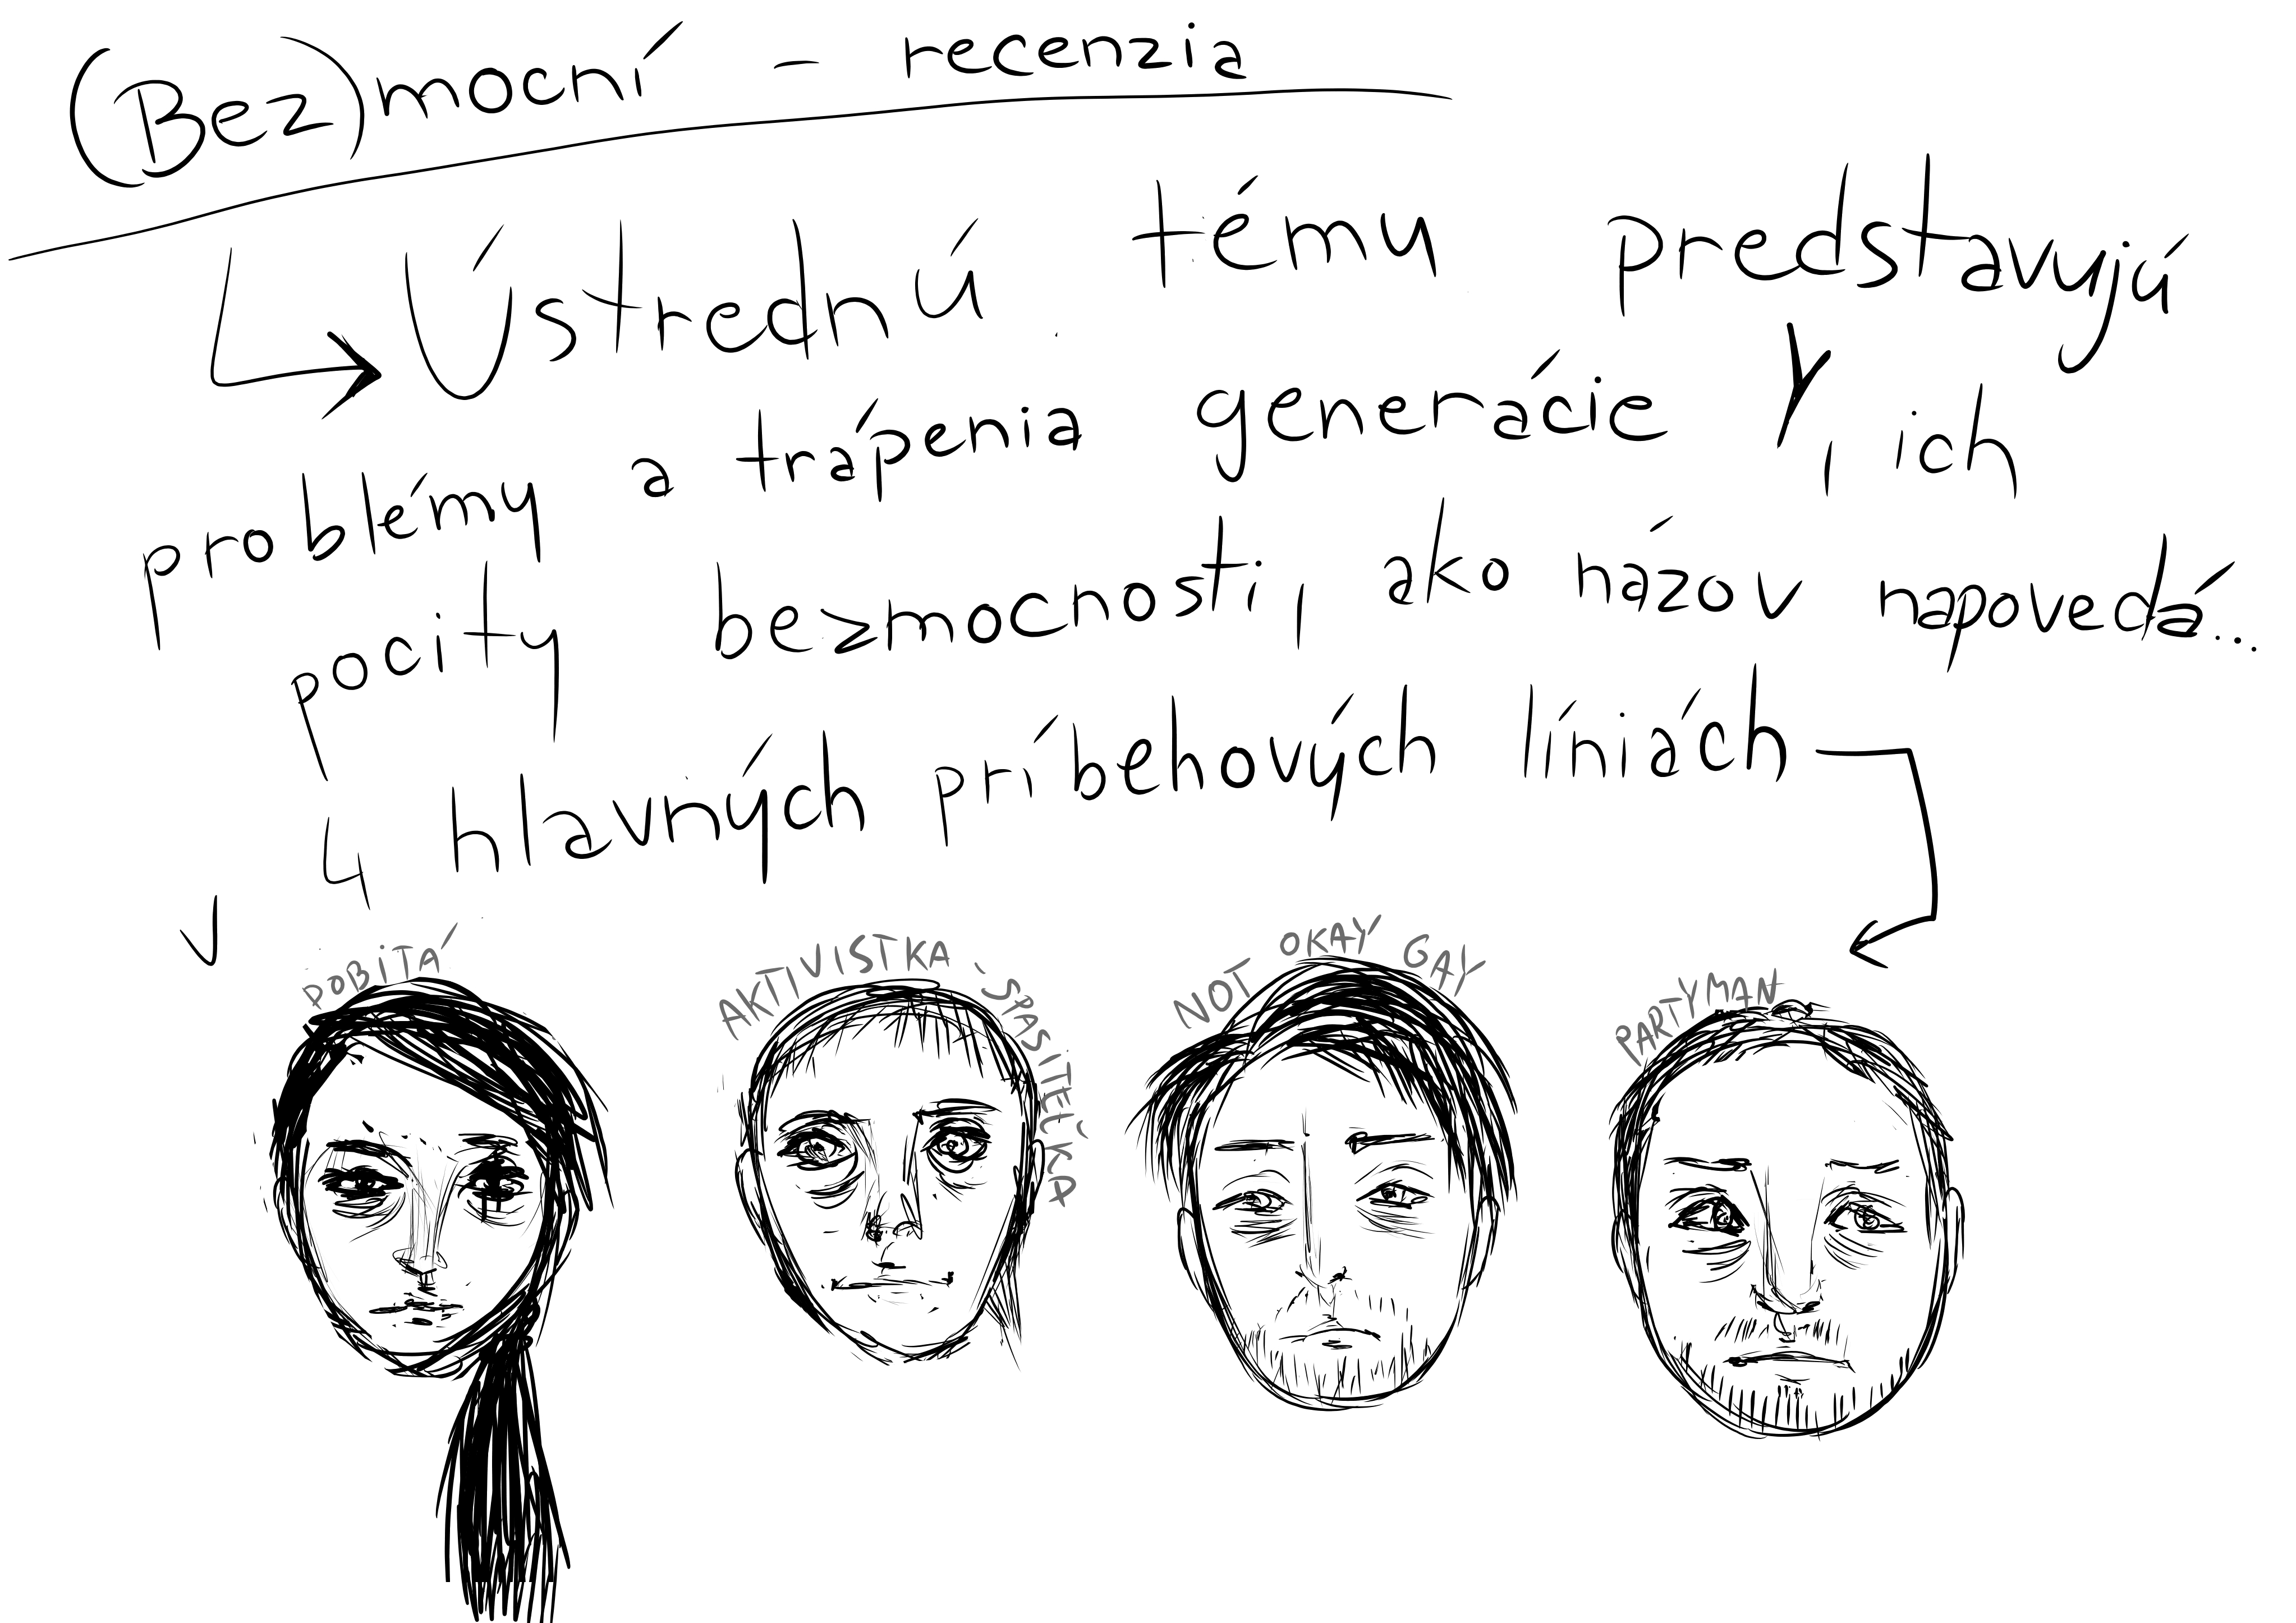 (Bez)mocní - recenzia
Ústrednú tému predstavujú
problémy a trápenia generácie Y, ich
pocity bezmocnosti, ako názov napovedá...
v 4 hlavných príbehových líniách
POBITÁ
AKTIVISTKA - SPASITEĽKA
NOT OKAY GAY
PARTYMAN